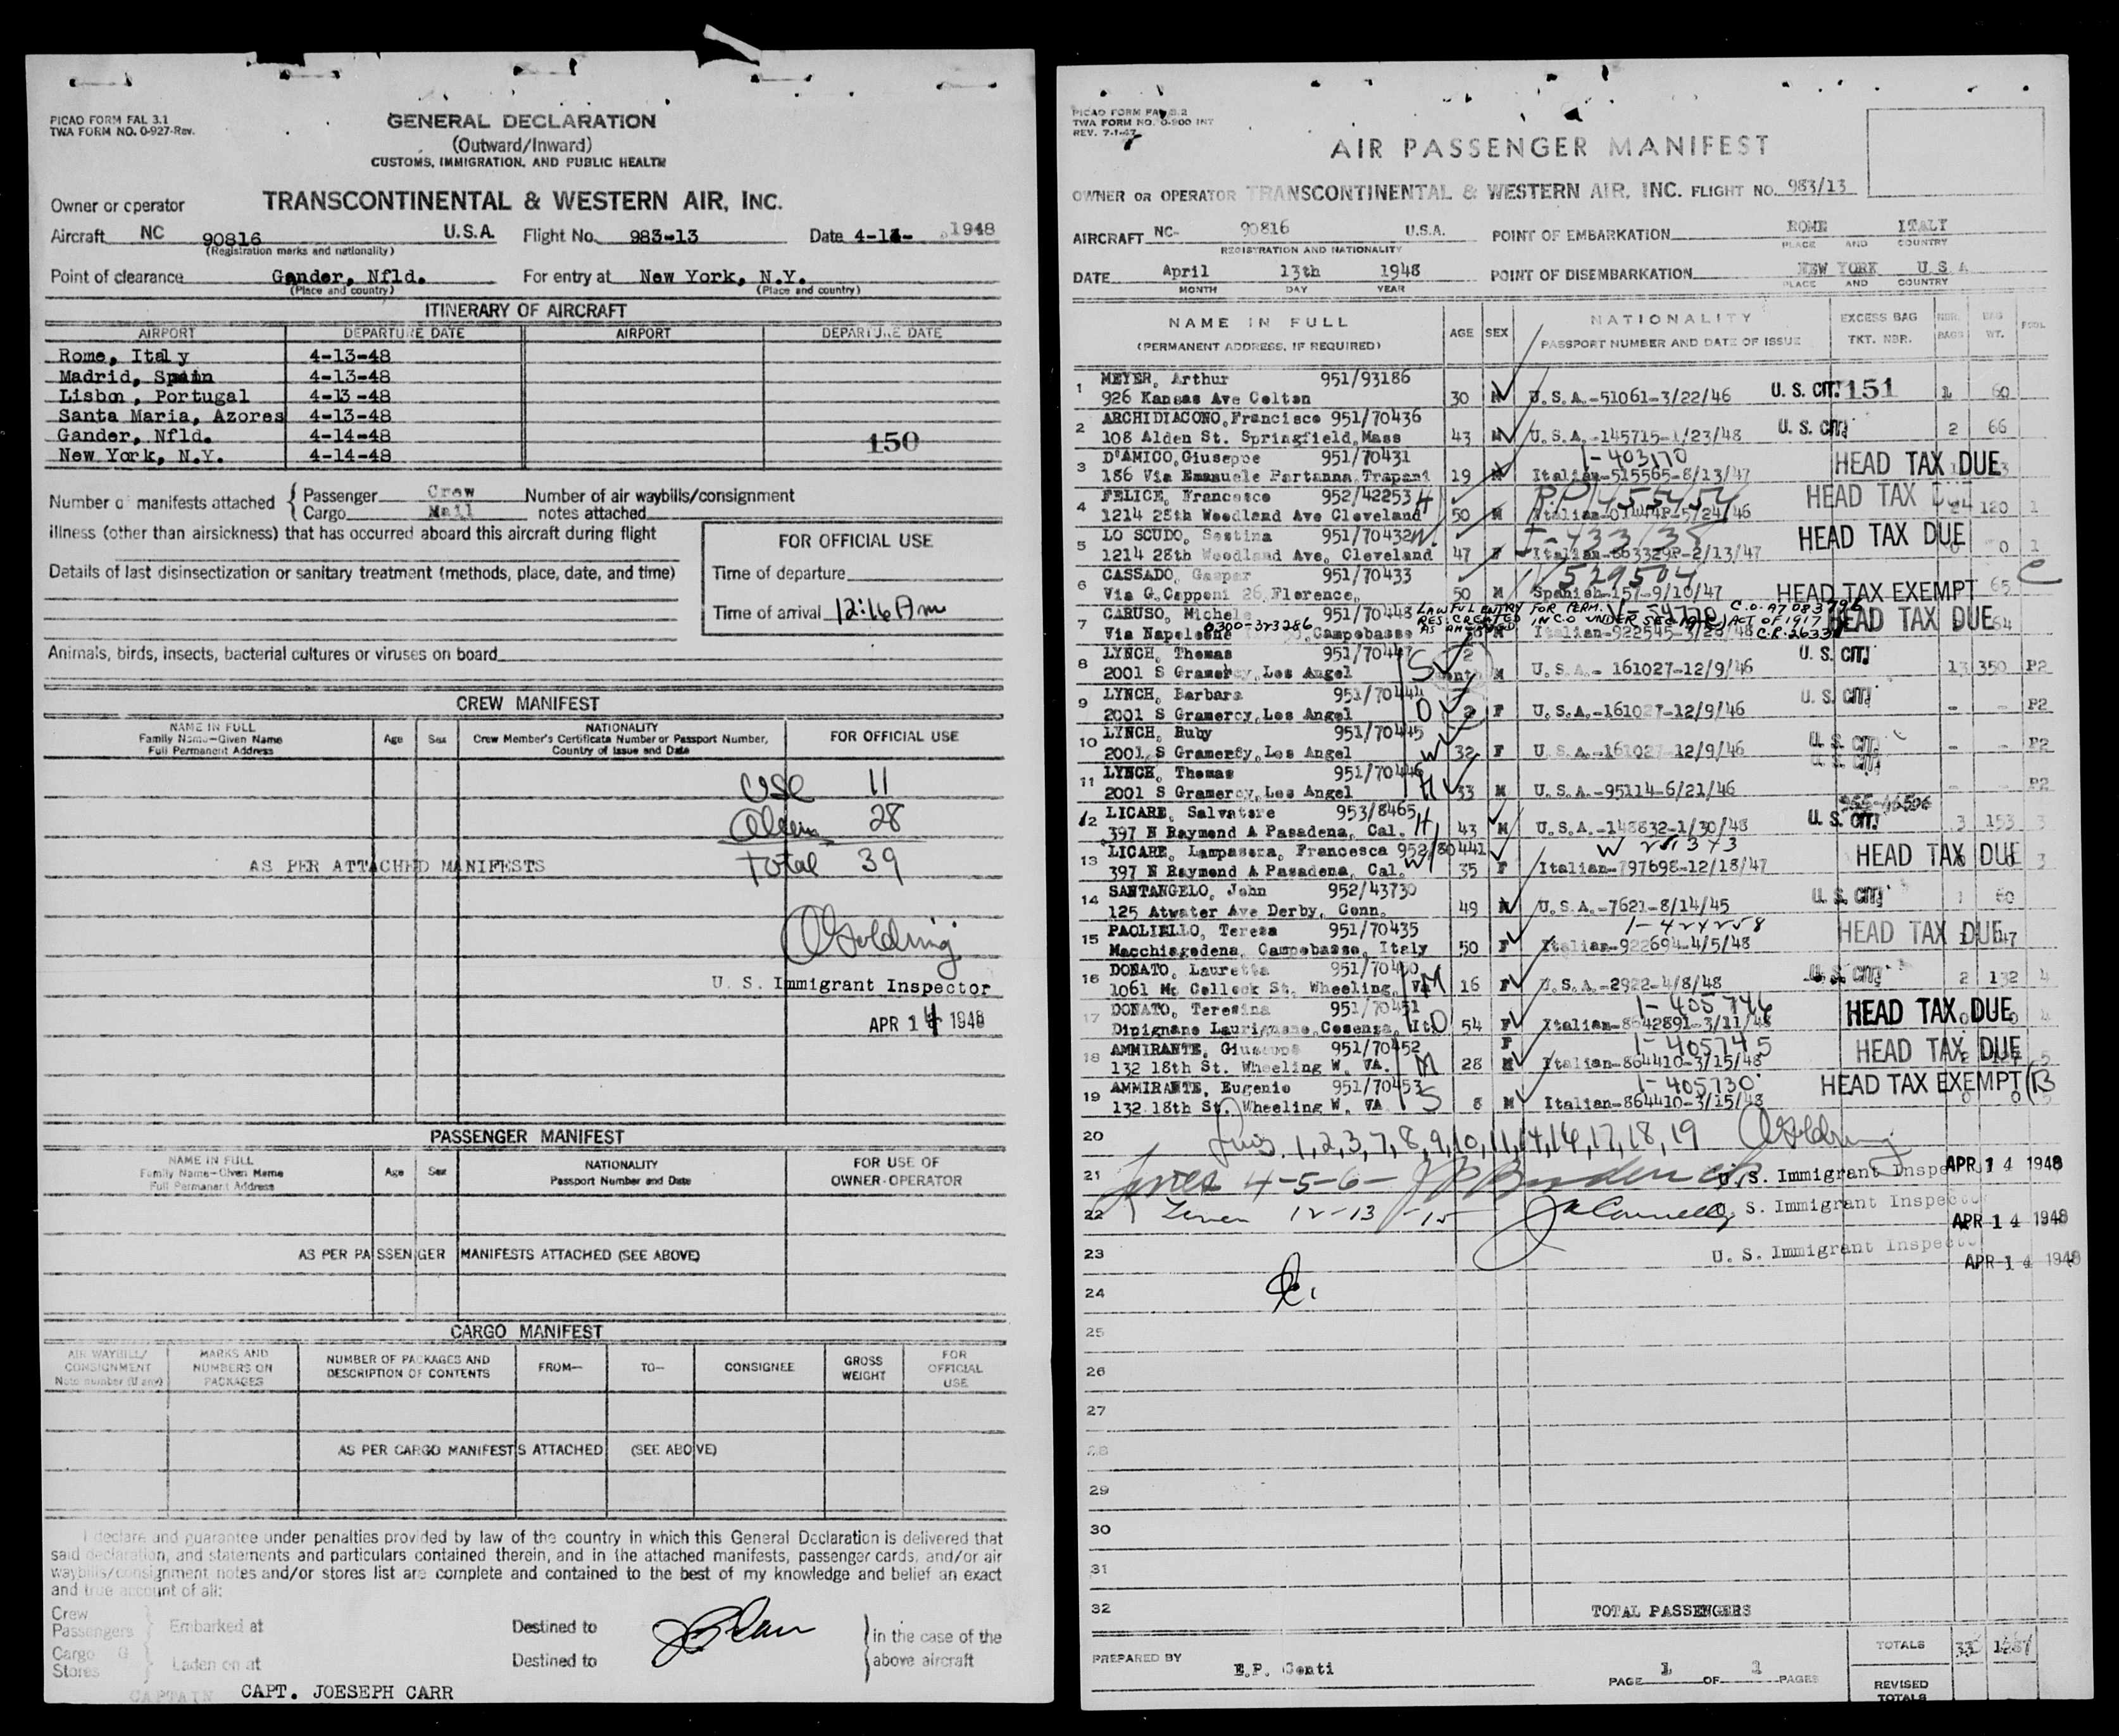 PICAO FORM FAL 3.1
TWA FORM NO. 0-927-Rev.
GENERAL DECLARATION
(Outward/Inward)
CUSTOMS, IMMIGRATION, AND PUBLIC HEALTH
Owner or operator TRANSCONTINENTAL & WESTERN AIR, INC.
Aircraft NC 90816 U.S.A. Flight No. 983-13 Date 4-13- 1948
(Registration marks and nationality)
Point of clearance Gander, Nfld. For entry at New York, N.Y.
(Place and country) (Place and country)
ITINERARY OF AIRCRAFT
AIRPORT DEPARTURE DATE AIRPORT DEPARTURE DATE
Rome, Italy 4-13-48
Madrid, Spain 4-13-48
Lisbon, Portugal 4-13-48
Santa Maria, Azores 4-13-48
Gander, Nfld. 4-14-48 150
New York, N.Y. 4-14-48
Number of manifests attached { Passenger Crew Number of air waybills/consignment
Cargo Mail notes attached
Illness (other than airsickness) that has occurred aboard this aircraft during flight
Details of last disinsectization or sanitary treatment (methods, place, date, and time)
FOR OFFICIAL USE
Time of departure
Time of arrival 12:16 Am
Animals, birds, insects, bacterial cultures or viruses on board
CREW MANIFEST
NAME IN FULL
Family Name-Given Name
Full Permanent Address
Age Sex
NATIONALITY
Crew Member's Certificate Number or Passport Number,
Country of Issue and Date
FOR OFFICIAL USE
USC 11
Alien 28
AS PER ATTACHED MANIFESTS Total 39
A Goldring
U. S. Immigrant Inspector
APR 14 1948
PASSENGER MANIFEST
NAME IN FULL
Family Name-Given Name
Full Permanent Address
Age Sex
NATIONALITY
Passport Number and Date
FOR USE OF
OWNER-OPERATOR
AS PER PASSENGER MANIFESTS ATTACHED (SEE ABOVE)
CARGO MANIFEST
AIR WAYBILL/
CONSIGNMENT
Note number (if any)
MARKS AND
NUMBERS ON
PACKAGES
NUMBER OF PACKAGES AND
DESCRIPTION OF CONTENTS
FROM— TO— CONSIGNEE
GROSS
WEIGHT
FOR
OFFICIAL
USE
AS PER CARGO MANIFESTS ATTACHED (SEE ABOVE)
I declare and guarantee under penalties provided by law of the country in which this General Declaration is delivered that
said declaration, and statements and particulars contained therein, and in the attached manifests, passenger cards, and/or air
waybills/consignment notes and/or stores list are complete and contained to the best of my knowledge and belief an exact
and true account of all:
Crew
Passengers } Embarked at Destined to } in the case of the
Cargo
Stores } Laden on at Destined to above aircraft
CAPTAIN CAPT. JOESEPH CARR
TWA FORM NO. 0-900 INT
REV. 7-1-47
AIR PASSENGER MANIFEST
OWNER OR OPERATOR TRANSCONTINENTAL & WESTERN AIR, INC. FLIGHT NO. 983/13
AIRCRAFT NC- 90816 U.S.A. POINT OF EMBARKATION ROME ITALY
REGISTRATION AND NATIONALITY PLACE AND COUNTRY
DATE April 13th 1948 POINT OF DISEMBARKATION NEW YORK U S A
MONTH DAY YEAR PLACE AND COUNTRY
NAME IN FULL
(PERMANENT ADDRESS, IF REQUIRED)
AGE SEX
NATIONALITY
PASSPORT NUMBER AND DATE OF ISSUE
EXCESS BAG
TKT. NBR.
NBR. BAGS
BAG WT.
POOL
1 MEYER, Arthur 951/93186
926 Kansas Ave Colton 30 M U.S.A.-51061-3/22/46 U. S. CIT. 151 1 60
2 ARCHIDIACONO, Francisco 951/70436
108 Alden St. Springfield, Mass 43 M U.S.A.-145715-1/23/48 U. S. CIT. 2 66
3 D'AMICO, Giuseppe 951/70431 I-403170
186 Via Emanuele Partanna, Trapani 19 M Italian-515565-8/13/47 HEAD TAX DUE
4 FELICE, Francesco 952/42253 H
1214 28th Woodland Ave Cleveland 50 M HEAD TAX DUE 120 1
5 LO SCUDO, Sestina 951/70432 W
1214 28th Woodland Ave, Cleveland 47 F Italian-863329P-2/13/47 HEAD TAX DUE 1
6 CASSADO, Gaspar 951/70433 V 529504
Via G. Capponi 26, Florence, 50 M Spanish-157-9/10/47 HEAD TAX EXEMPT 65
7 CARUSO, Michele 951/70448 LAWFUL ENTRY FOR PERM.
0300-323286 RES. CREATED IN C.O. UNDER SEC. ACT OF 1917
Via Napoleone Campobasso M Italian-922545-3/28/48 HEAD TAX DUE 64
8 LYNCH, Thomas S
2001 S Gramercy, Los Angel M U.S.A.- 161027-12/9/46 U. S. CIT. 13 350 P2
9 LYNCH, Barbara 951/70444 D
2001 S Gramercy, Los Angel 2 F U.S.A.-161027-12/9/46 U. S. CIT. - - P2
10 LYNCH, Ruby 951/70445 W
2001 S Gramercy, Los Angel 32 F U.S.A.-161027-12/9/46 U. S. CIT. - - P2
11 LYNCH, Thomas 951/70446 H
2001 S Gramercy, Los Angel 33 M U.S.A.-95114-6/21/46 - - P2
12 LICARE, Salvatore 953/8465 H
397 N Raymond A Pasadena, Cal. 43 M U.S.A.-148832-1/30/48 U. S. CIT. 3 153 3
13 LICARE, Lampasona, Francesca 952/80441 W
397 N Raymond A Pasadena, Cal. 35 F Italian-797698-12/18/47 HEAD TAX DUE 3
14 SANTANGELO, John 952/43730
125 Atwater Ave Derby, Conn. 49 M U.S.A.-7621-8/14/45 U. S. CIT. 1 60
15 PAOLIELLO, Teresa 951/70435 I-424258
Macchiagodena, Campobasso, Italy 50 F Italian-922694-4/5/48 HEAD TAX DUE 47
16 DONATO, Lauretta
1061 Mc Collock St. Wheeling, VA 16 F U.S.A.-2922-4/8/48 U. S. CIT. 2 132 4
17 DONATO, Teresina 951/70451 I-405746
Dipignano Laurignano, Cosenza, It. 54 F Italian-8642891-3/11/48 HEAD TAX DUE 4
18 AMMIRANTE, Giuseppe 951/70452 F I-405745
132 18th St. Wheeling W. VA. M 28 Italian-864410-3/15/48 HEAD TAX DUE 5
19 AMMIRANTE, Eugenio 951/70453 I-405730
132 18th St. Wheeling W. VA S 8 M Italian-864410-3/15/48 HEAD TAX EXEMPT 5
20 Lines 1,2,3,7,8,9,10,11,14,16,17,18,19 A Goldring
21 Lines 4-5-6- U. S. Immigrant Inspector APR 14 1948
22 Lines 12-13-15 U. S. Immigrant Inspector APR 14 1948
23 U. S. Immigrant Inspector APR 14 1948
24
25
26
27
28
29
30
31
32 TOTAL PASSENGERS
TOTALS 33
PREPARED BY E.P. Conti PAGE 1 OF 1 PAGES
REVISED
TOTALS